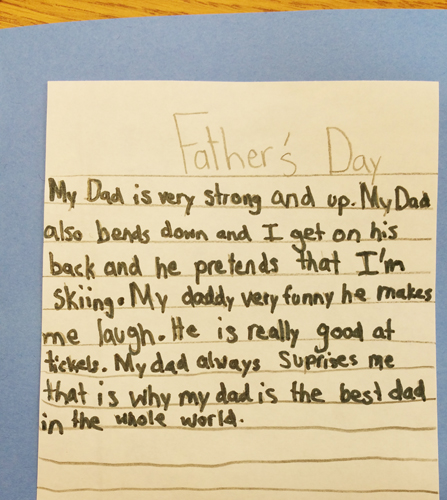 Father's Day
My Dad is very strong and up. My Dad
also bends down and I get on his
back and he pretends that I'm
skiing. My daddy very funny he makes
me laugh. He is really good at
tickels. My dad always Suprises me
that is why my dad is the best dad
in the whole world.